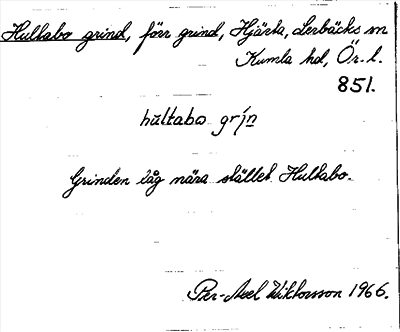 Hultabo grind, förr grind, Hjärta, Lerbäcks sn
Kumla hd, Ör. l.
851.
hultabo grin
Grinden låg nära stället Hultabo.
Per-Axel Wiktorsson 1966.